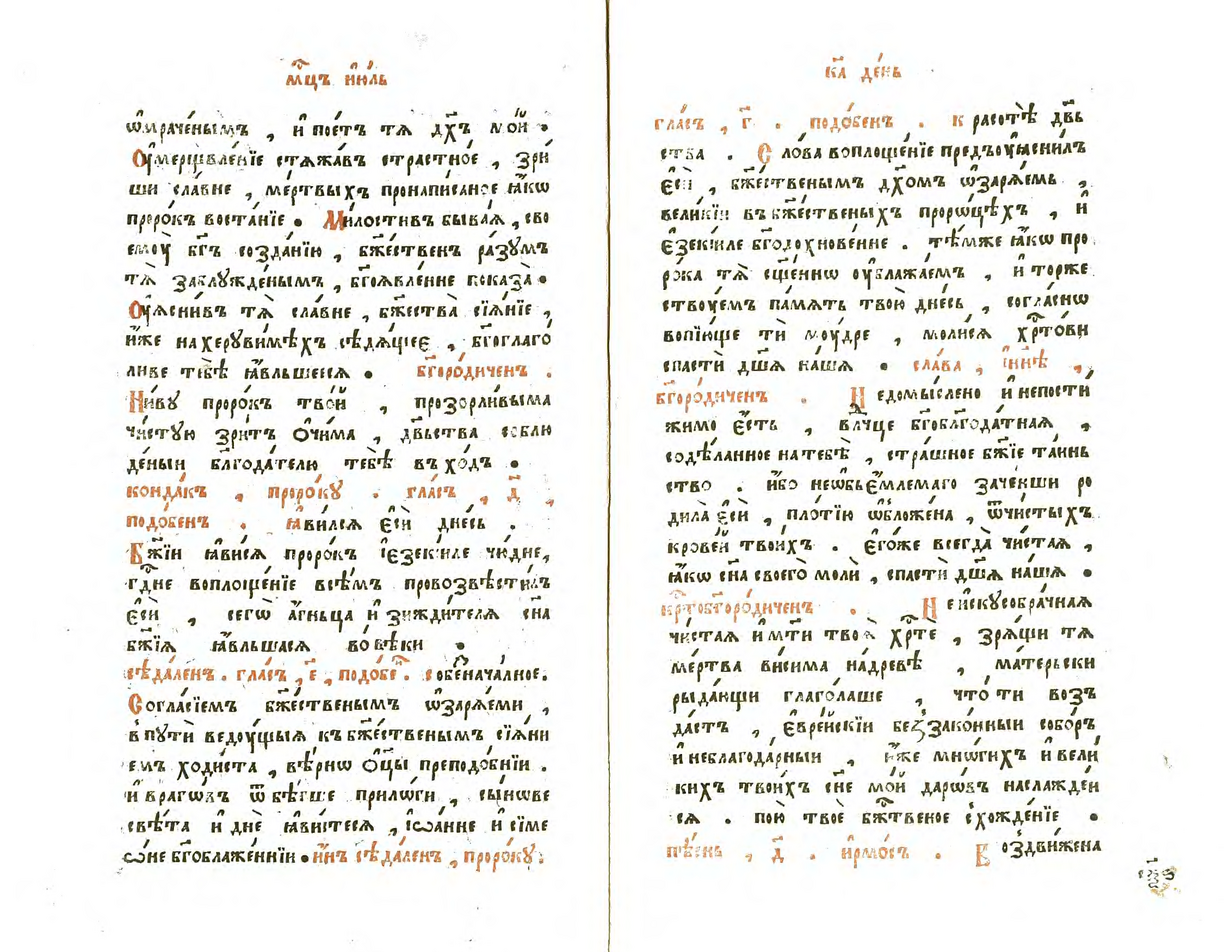 мⷭ҇цъ і҆ю́ль
ѡ҆мраче́нымъ , и҆ пое́тъ тѧ̀ дх҃ъ мо́й .
Оу҆мерщвле́нїе стѧжа́въ стра́стное , зрѝ
ши сла́вне , ме́ртвыхъ пронаписа́ное ꙗ҆́кѡ
проро́къ воста́нїе . Ми́лостивъ быва́ѧ , сво
емоу̀ бг҃ъ созда́нїю , бж҃е́ственъ ра́зумъ
тѧ̀ заблужде́нымъ , бг҃оꙗвле́нне показа̀ .
Оу҆ѧсни́въ тѧ̀ сла́вне , бж҃ества̀ сїѧ́нїе ,
и҆́же на херуви́мѣхъ сѣдѧ́щее , бг҃оглаго́
ливе тебѣ̀ ꙗ҆́вльшеесѧ . бг҃оро́диченъ .
Ни́ву проро́къ тво́й , прозорли́выма
чи́стую зри́тъ о҆чи́ма , дв҃ьства соблю
де́ныи бл҃года́телю тебѣ̀ вхо́дъ .
конда́къ , проро́ку . гла́съ , д҃
подо́бенъ . ꙗ҆ви́лсѧ є҆сѝ дне́сь .
Бж҃їи ꙗ҆ви́сѧ проро́къ і҆езекі́иле чю́дне,
гдⷭ҇не воплоще́нїе всѣ́мъ провозвѣсти́лъ
є҆сѝ , сего̀ а҆́гньца и҆ зижди́телѧ сн҃а
бж҃їѧ ꙗ҆́вльшасѧ во вѣ́ки .
сѣда́ленъ . гла́съ , є҃ , подо́бе . собенача́лное .
Согла́сїемъ бж҃е́ственымъ ѡ҆зарѧ́еми ,
в пути̑ ведоу́щыѧ къ бж҃е́ственымъ сїѧ́ни
емъ ходи́ста , вѣ́рнѡ о҆ц҃ы преподо́бнїи .
и҆ врагѡ́въ ѿбѣ́гше прило́ги , сы́нѡве
свѣ́та и҆ днѐ ꙗ҆ви́стесѧ , і҆ѡа́нне и҆ сїме
ѡ́не бг҃облаже́ннїи . и҆́нъ сѣда́ленъ , проро́ку .
ка҃ де́нь
гла́съ , г҃ . подо́бенъ . красотѣ̀ дв҃ь
ства . Сло́ва воплоще́нїе предъоуѧсни́лъ
є҆сѝ , бж҃е́ственымъ дх҃омъ ѡ҆зарѧ́емь ,
вели́кїи въ бж҃е́ственыхъ проро́цѣхъ , и҆
є҆зекі́иле бг҃одохнове́нне . тѣ́мже ꙗ҆́кѡ про
ро́ка тѧ̀ сщ҃е́ннѡ оу҆блажа́емъ , и҆ торже
ствоу́емъ па́мѧть твою̀ дне́сь , согла́снѡ
вопїю́ще тѝ моу́дре , моли́сѧ хрⷭ҇то́ви
спастѝ дш҃ѧ на́шѧ . сла́ва , и҆ нн҃ѣ ,
бг҃оро́диченъ . Недомы́слено и҆ непости
жи́мо є҆́сть , влⷣчце бг҃облгода́тная ,
содѣ́ланное на тебѣ̀ , стра́шное бж҃їе та́инь
ство . и҆́бо неѡбъе́млемаго заче́нши ро
дила̀ є҆сѝ , пло́тїю ѡ҆бложе́на , ѿ чи́стыхъ
крове́й твои́хъ . є҆го́же всегда̀ чи́стая ,
ꙗ҆́кѡ сн҃а своего̀ молѝ , спастѝ дш҃ѧ на́шѧ .
крⷭ҇тобг҃оро́диченъ . Неискусобра́чная
чи́стая и҆ мт҃и твоѧ̀ хрⷭ҇тѐ , зрѧ́щи тѧ̀
ме́ртва ви́сима на дре́вѣ , ма́терьски
рыда́ющи глаго́лаше , что́ ти возъ
да́стъ , є҆вре́йскїи беззако́нныи собо́ръ
и҆ неблагода́рныи , и҆́же мно́гихъ и҆ вели́
кихъ твои́хъ сн҃е мо́й даро́въ наслажде́и
сѧ . пою̀ твоѐ бжⷭ҇твеное схожде́нїе .
пѣ́снь , д҃ . и҆рмо́съ . Воздви́жена